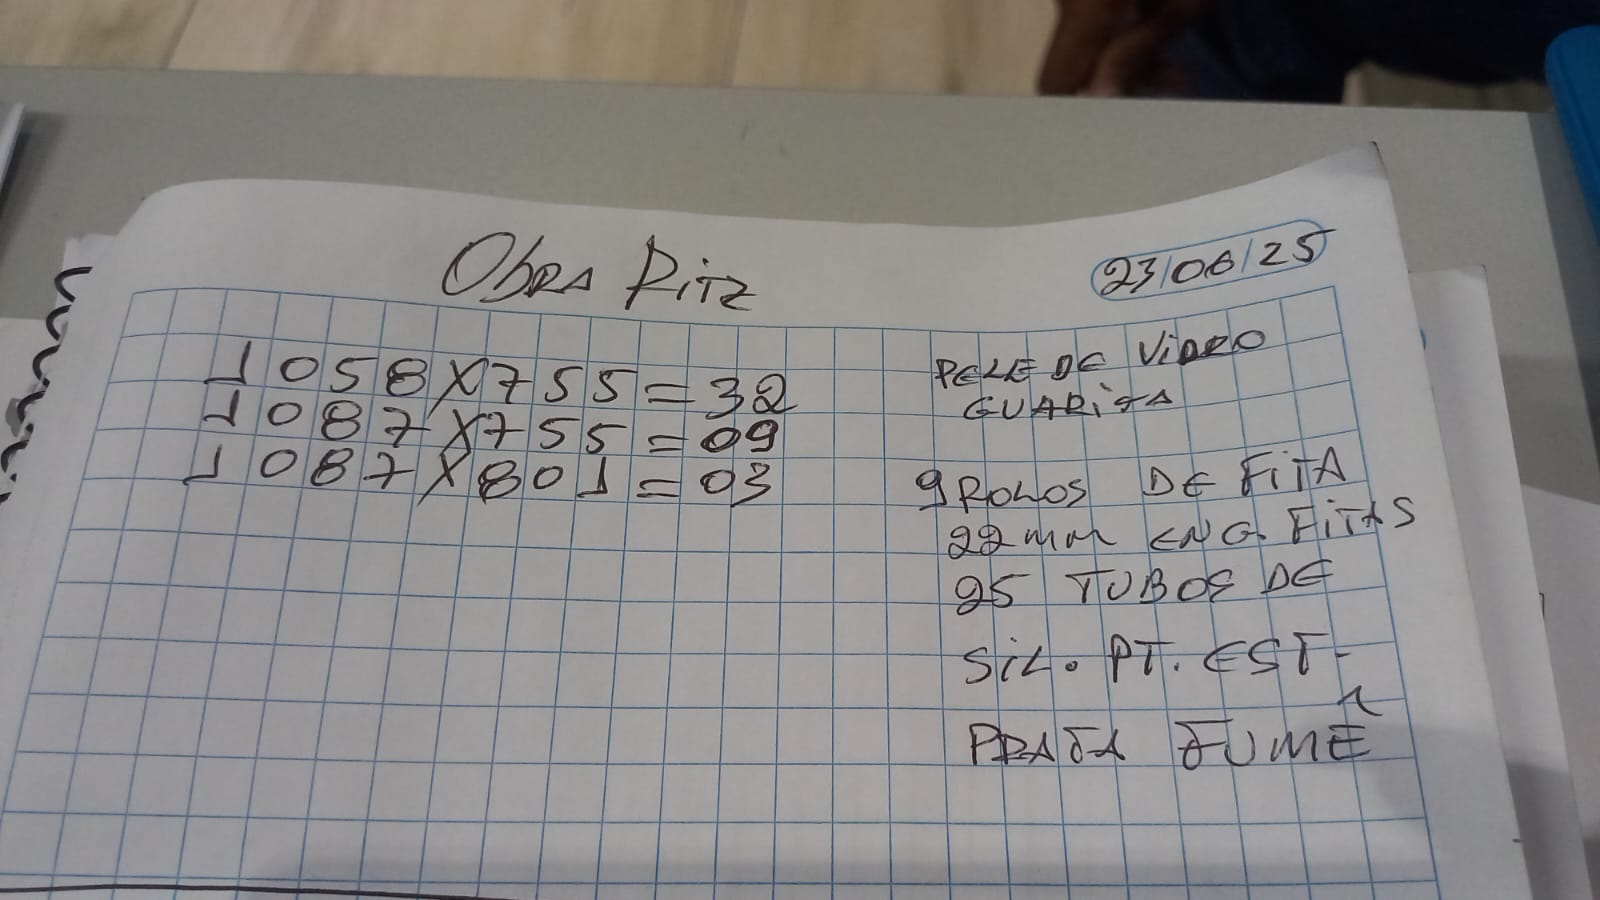 Obra Ritz
23/06/25
1058X755=32
1087X755=09
1087X801=03
PELE DE VIDRO
GUARITA
9 ROLOS DE FITA
22mm ENG. FITAS
25 TUBOS DE
SIL. PT. EST-
PRATA FUMÊ